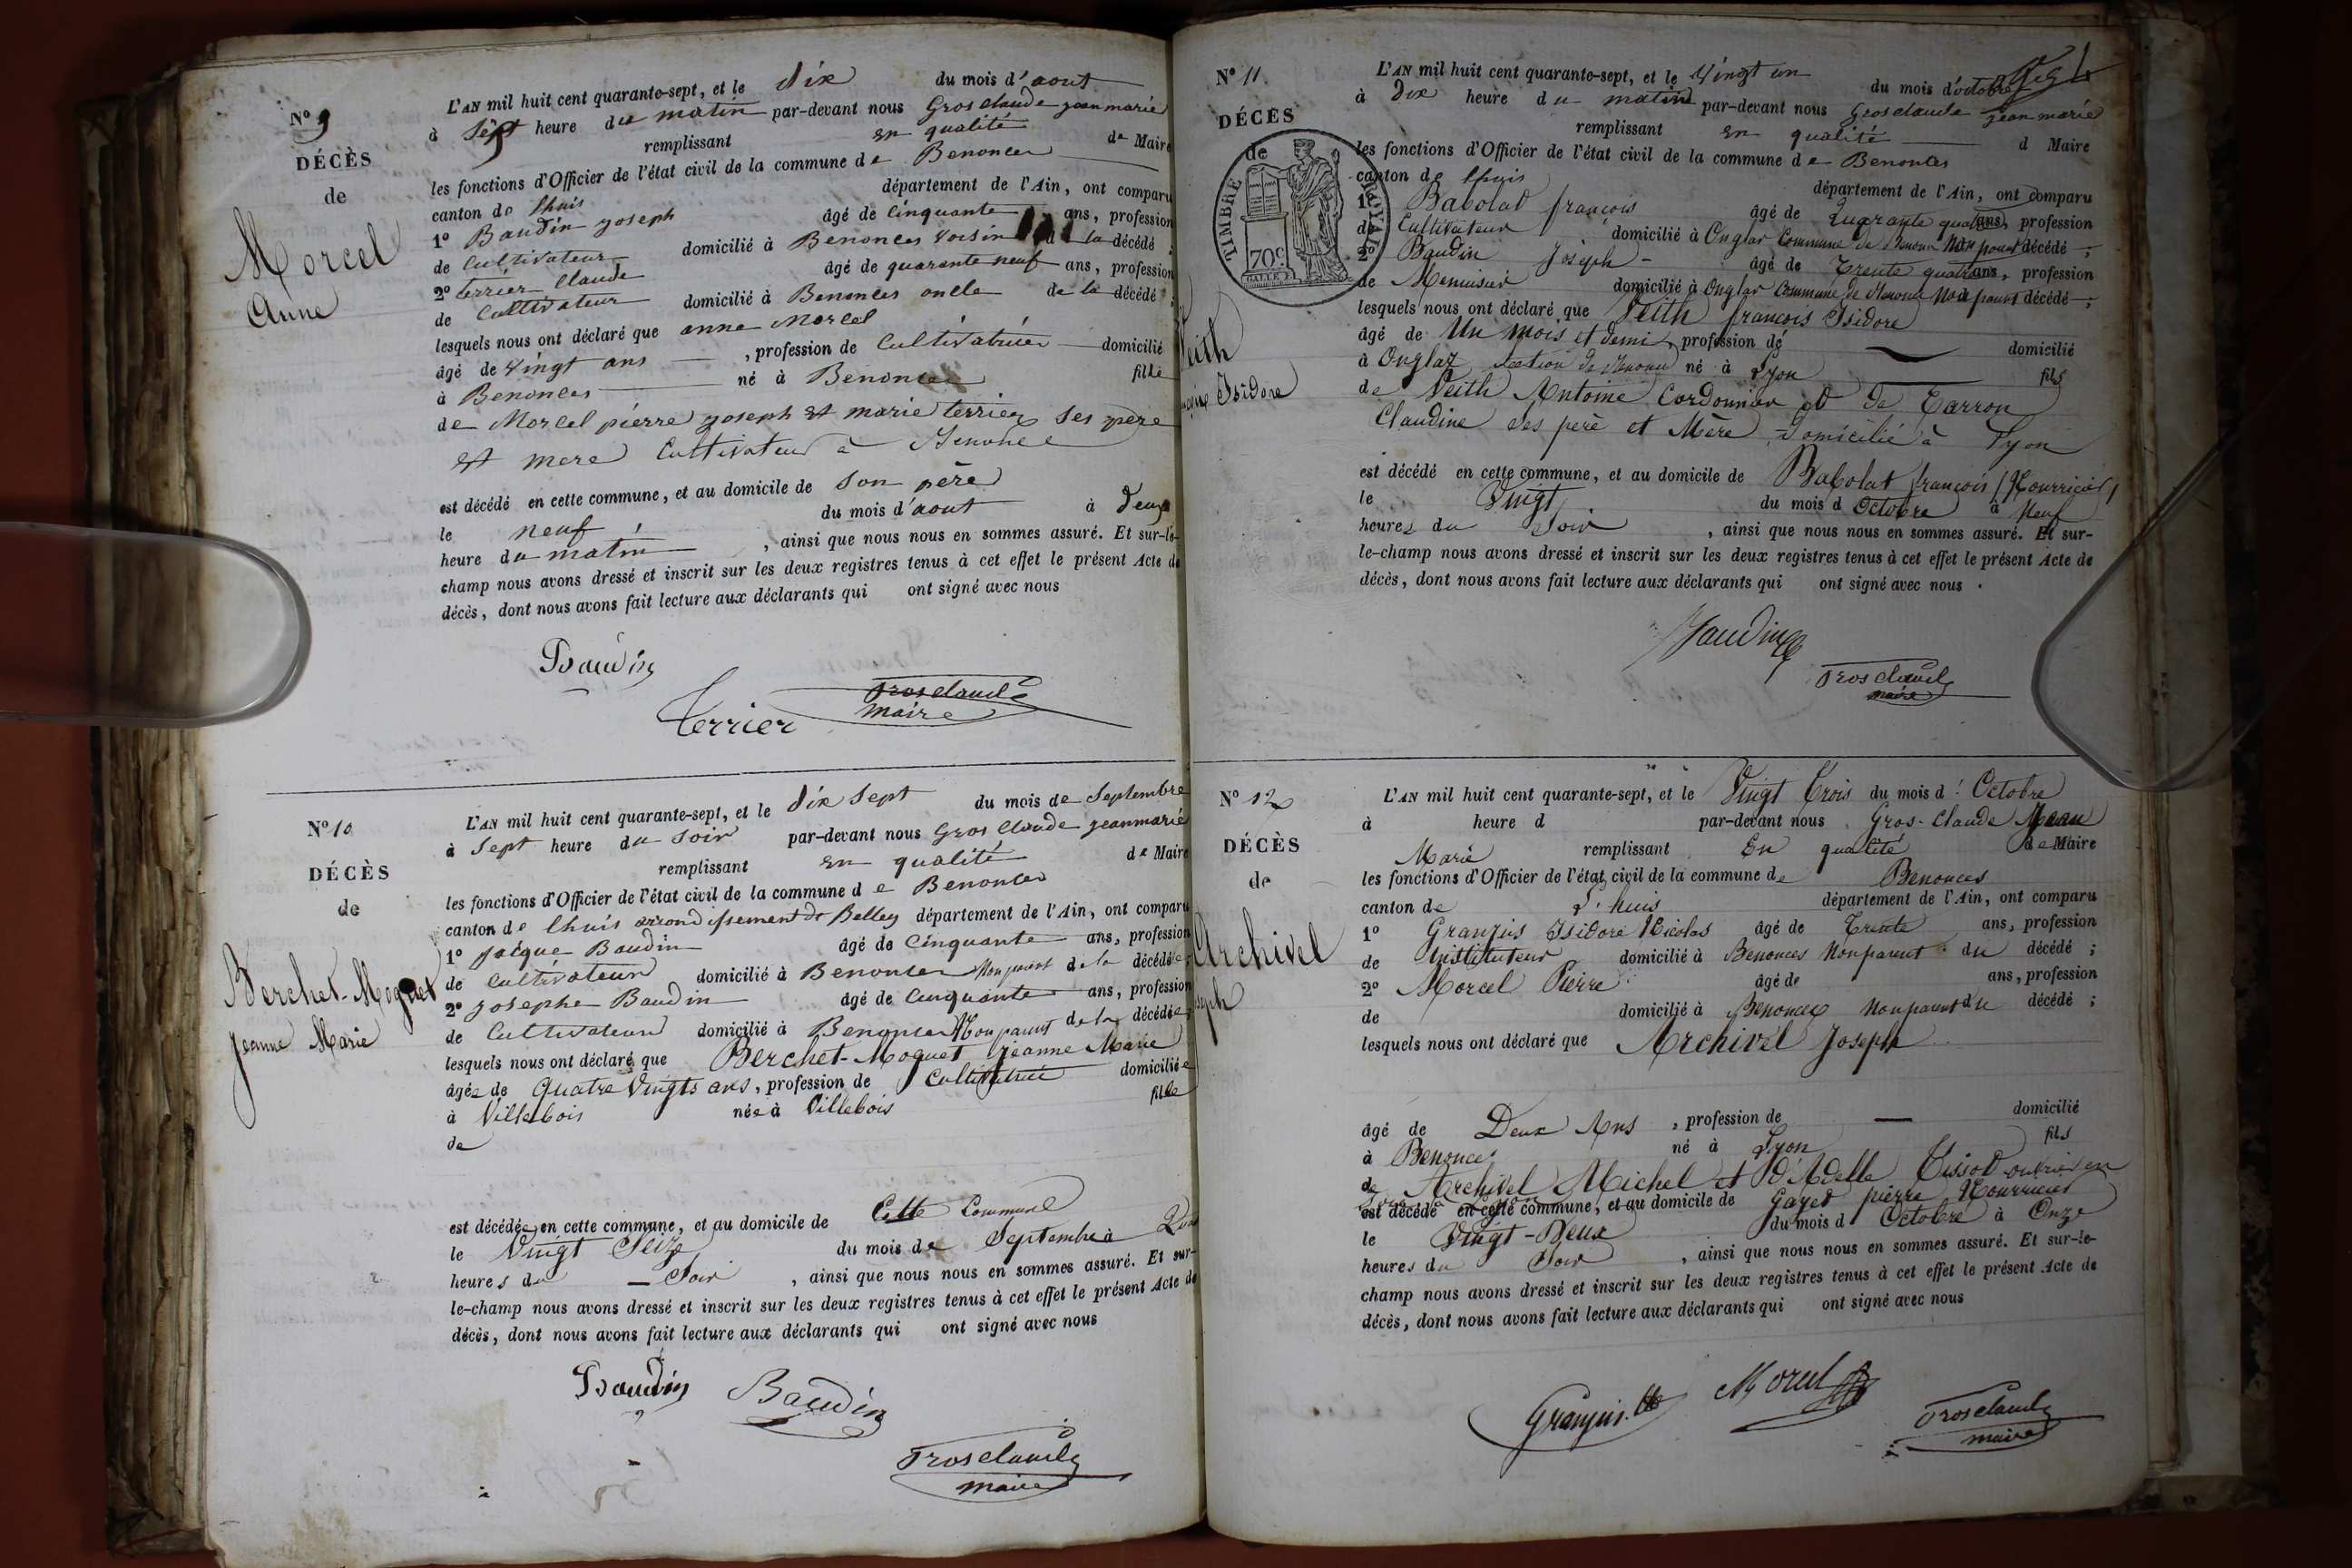 N° 9
DÉCÈS
de
Morcel
Anne
L'AN mil huit cent quarante-sept, et le dix du mois d'aout
à sept heure du matin par-devant nous Grosclaude jean marie
remplissant en qualité de Maire
les fonctions d'Officier de l'état civil de la commune de Benonces
canton de lhuis département de l'Ain, ont comparu
1° Baudin joseph âgé de cinquante ans, profession
de cultivateur domicilié à Benonces voisin de la décédé ;
2° terrier Claude âgé de quarante neuf ans, profession
de cultivateur domicilié à Benonces oncle de la décédé ;
lesquels nous ont déclaré que anne Morcel
âgé de vingt ans , profession de Cultivatrice domicilié
à Benonces né à Benonces fille
de Morcel pierre joseph et marie terrier ses père
et mere Cultivateur à Benonce
est décédé en cette commune, et au domicile de son père
le neuf du mois d'aout à deux
heure du matin , ainsi que nous nous en sommes assuré. Et sur-le-
champ nous avons dressé et inscrit sur les deux registres tenus à cet effet le présent Acte de
décès, dont nous avons fait lecture aux déclarants qui ont signé avec nous
Baudin
Terrier
Grosclaude
maire
N° 10
DÉCÈS
de
Berchet-Moguet
Jeanne Marie
L'AN mil huit cent quarante-sept, et le dix sept du mois de Septembre
à sept heure du soir par-devant nous Gros Claude jeanmarie
remplissant en qualité de Maire
les fonctions d'Officier de l'état civil de la commune de Benonces
canton de lhuis arrondissement de Belley département de l'Ain, ont comparu
1° jacque Baudin âgé de Cinquante ans, profession
de Cultivateur domicilié à Benonces Non parent de la décédée ;
2° josephe Baudin âgé de Cinquante ans, profession
de Cultivateur domicilié à Benonces Non parent de la décédée ;
lesquels nous ont déclaré que Berchet-Moguet Jeanne Marie
âgée de Quatre Vingts ans, profession de Cultivatrice domiciliée
à Villebois née à Villebois fille
de
est décédée en cette commune, et au domicile de Cette Commune
le Vingt Seize du mois de Septembre à
heures du Soir , ainsi que nous nous en sommes assuré. Et sur-
le-champ nous avons dressé et inscrit sur les deux registres tenus à cet effet le présent Acte de
décès, dont nous avons fait lecture aux déclarants qui ont signé avec nous
Baudin Baudin
Grosclaude
maire
N° 11
DÉCÈS
de
TIMBRE ROYAL
70c
Veith
Isidore
L'AN mil huit cent quarante-sept, et le Vingt un du mois d'octobre
à Dix heure du matin par-devant nous Grosclaude jean marie
remplissant en qualité d Maire
les fonctions d'Officier de l'état civil de la commune de Benonces
canton de lhuis département de l'Ain, ont comparu
1° Babolat françois âgé de Quarante quatre ans, profession
de Cultivateur domicilié à Onglas Commune de Benonce Non parent décédé ;
2° Baudin Joseph âgé de Trente quatre ans, profession
de Menuisier domicilié à Onglas Commune de Benonce Non parent décédé ;
lesquels nous ont déclaré que Veith françois Isidore
âgé de Un mois et demi, profession de domicilié
à Onglaz section de Benonce né à Lyon fils
de Veith Antoine Cordonnier et de Tarron
Claudine ses père et Mère Domicilié à Lyon
est décédé en cette commune, et au domicile de Babolat françois / Nourricier /
le Vingt du mois d Octobre à Neuf
heures du Soir , ainsi que nous nous en sommes assuré. Et sur-
le-champ nous avons dressé et inscrit sur les deux registres tenus à cet effet le présent Acte de
décès, dont nous avons fait lecture aux déclarants qui ont signé avec nous .
Baudin
Grosclaude
maire
N° 12
DÉCÈS
de
Archivel
seph
L'AN mil huit cent quarante-sept, et le Vingt Trois du mois d'Octobre
à heure d par-devant nous Gros-Claude Jean
Marie remplissant En qualité de Maire
les fonctions d'Officier de l'état civil de la commune de Benonces
canton de L'huis département de l'Ain, ont comparu
1° Granjus Isidore Nicolas âgé de Trente ans, profession
de Instituteur domicilié à Benonces Non parent du décédé ;
2° Morcel Pierre âgé de ans, profession
de domicilié à Benonces Non parent du décédé ;
lesquels nous ont déclaré que Archivel Joseph
âgé de Deux Ans , profession de domicilié
à Benonces né à Lyon fils
de Archivel Michel et d'Adelle Tissot ouvrier en
Soie à Lyon
est décédé en cette commune, et au domicile de Gayet pierre Nourricier
le Vingt-Deux du mois d Octobre à Onze
heures du Soir , ainsi que nous nous en sommes assuré. Et sur-le-
champ nous avons dressé et inscrit sur les deux registres tenus à cet effet le présent Acte de
décès, dont nous avons fait lecture aux déclarants qui ont signé avec nous
Granjus Morcel
Grosclaude
maire